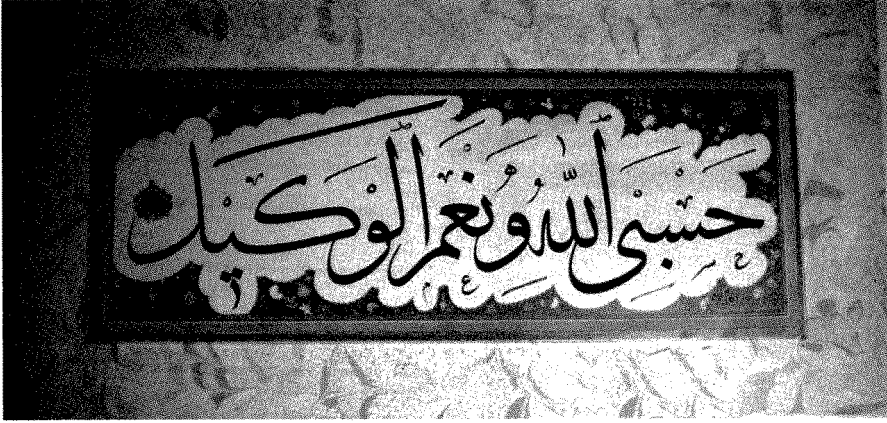 حَسْبِيَ اللّٰهُ وَنِعْمَ الْوَكِيلُ